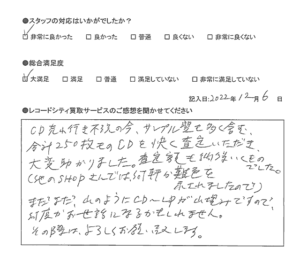 ●スタッフの対応はいかがでしたか？
☑非常に良かった □良かった □普通 □良くない □非常に良くない
●総合満足度
☑大満足 □満足 □普通 □満足していない □非常に満足していない
記入日:2022年 12月 6日
●レコードシティ買取サービスのご感想を聞かせてください
CD売れ行き不況の今、サンプル盤も多く含む、
合計250枚でのCDを快く査定いただき、
大変助かりました。査定額も
でした。
(他のSHOPさんでは 難色を
示されましたので)
まだまだ、山のようにCD〜LPが山積みですので、
何度かお世話になるかもしれません。
その際は、よろしくお願い致します。